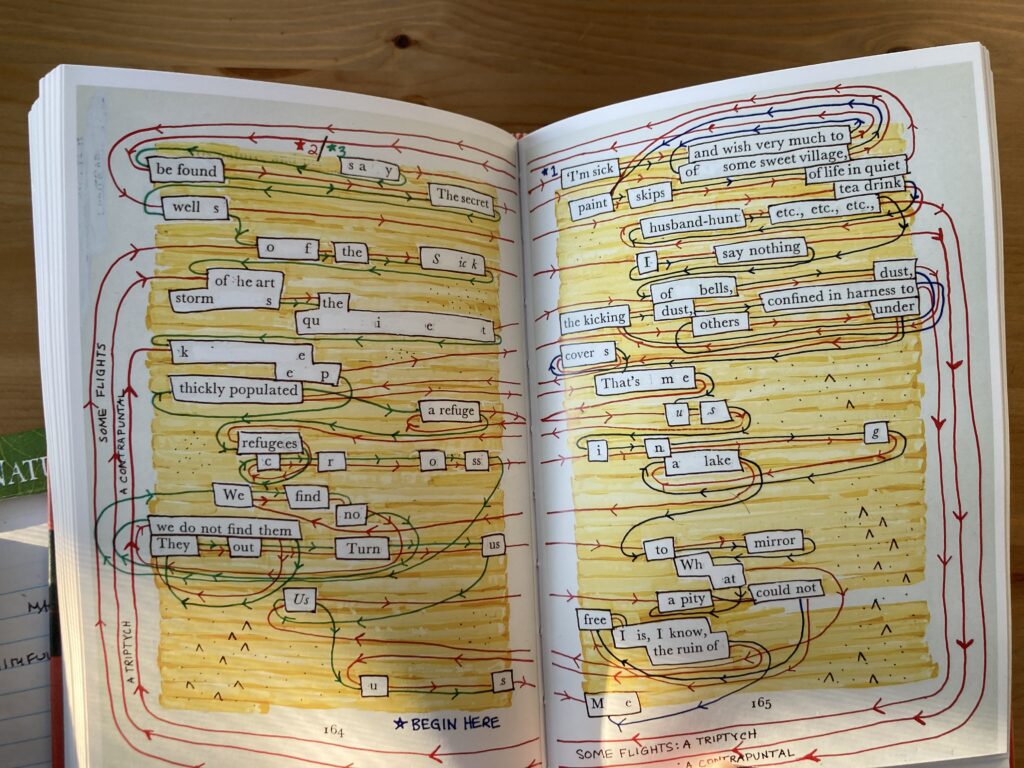 *2/*3
be found
s a y
The secret
well s
o f
the
S ick
of he art
storm s
the
qu i e t
k e
e p
thickly populated
a refuge
refugees
c
r
o
ss
We
find
no
we do not find them
They
out
Turn
us
Us
u
s
164
*BEGIN HERE
SOME FLIGHTS
A CONTRAPUNTAL
A TRIPTYCH
*1
'I'm sick
and wish very much to
of some sweet village,
of life in quiet
paint
skips
tea drink
husband-hunt
etc., etc., etc.,
I
say nothing
of bells,
dust,
dust,
confined in harness to
the kicking
others
under
cover s
That's m e
u
s
i
n
g
a lake
to
mirror
Wh
at
a pity
could not
free
I is, I know,
the ruin of
M e
165
SOME FLIGHTS: A TRIPTYCH
: A CONTRAPUNTAL